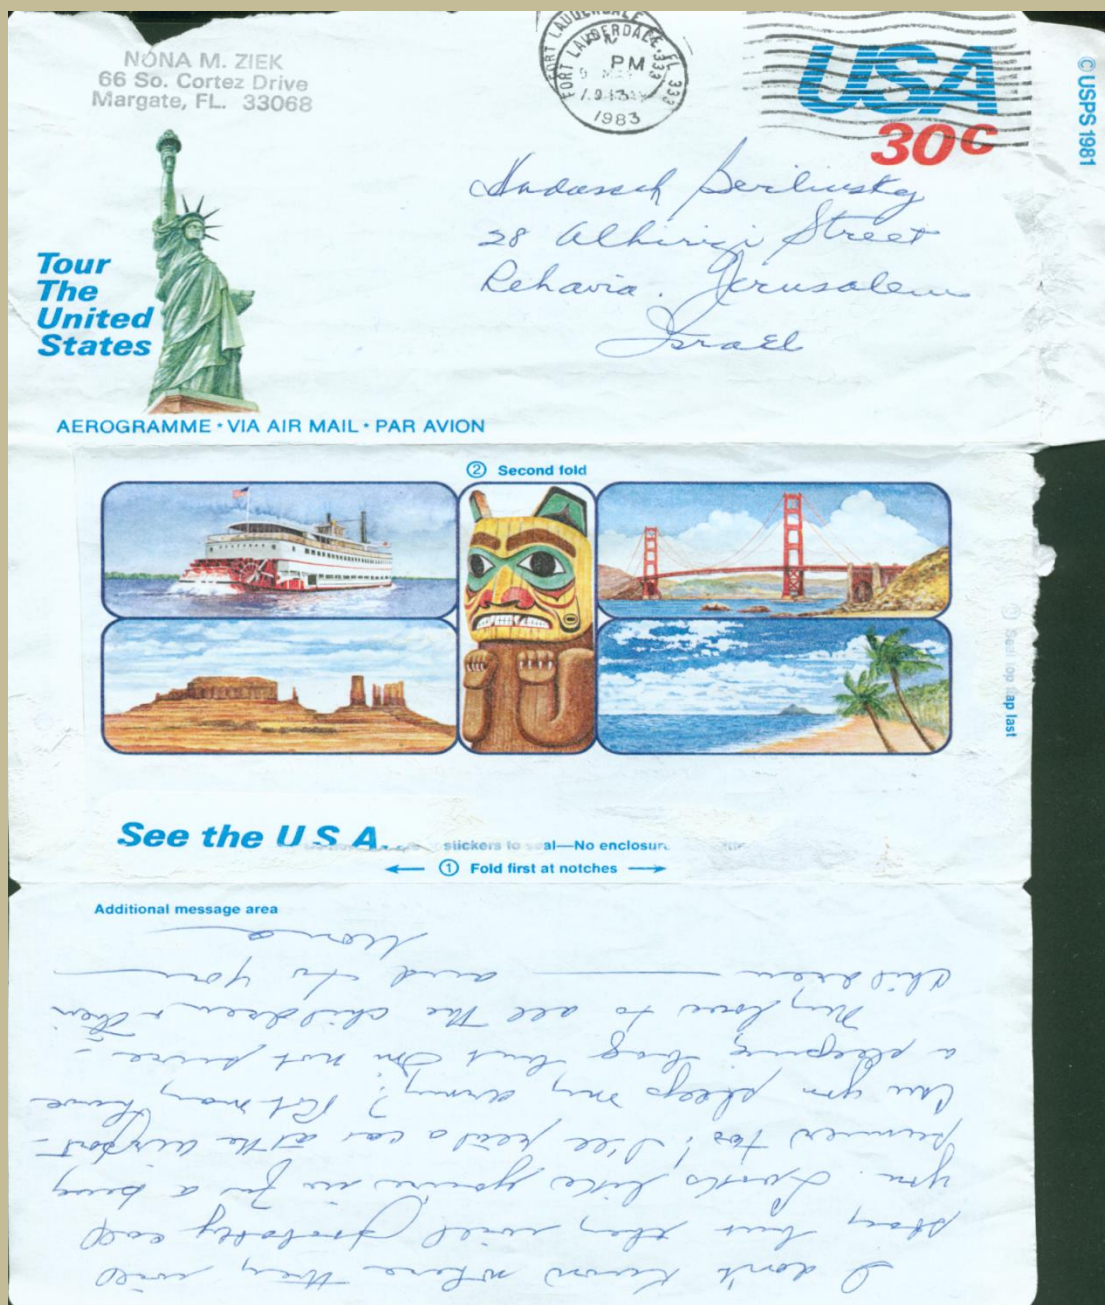 NONA M. ZIEK
66 So. Cortez Drive
Margate, FL. 33068
FORT LAUDERDALE, FL 333
PM
1983
USA
30c
© USPS 1981
Hadassah Berlinsky
28 Alharizi Street
Rehavia. Jerusalem
Israel
Tour
The
United
States
AEROGRAMME • VIA AIR MAIL • PAR AVION
② Second fold
ap last
See the U S A.
stickers to al—No enclosur
① Fold first at notches
Additional message area
I don't know where they will
stay but they will probably call
you. Looks like you're in for a busy
summer too! I'll get a car at the airport—
Can you sleep my army? Pat may have
a sleeping bag but I'm not sure—
My love to all the children & their
children — and to you —
Nona